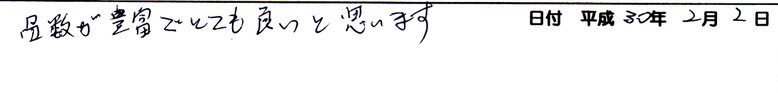 品数が豊富でとても良いと思います
日付 平成30年2月2日